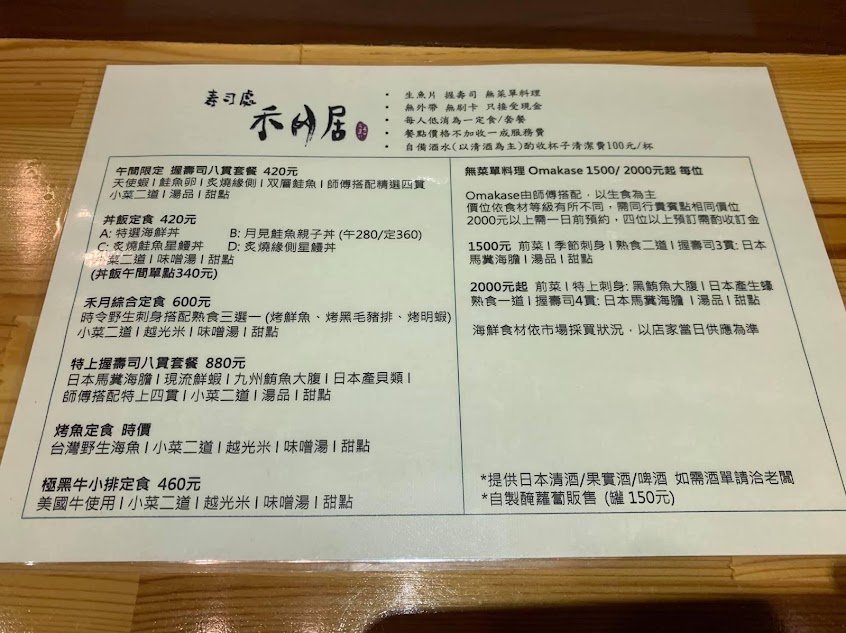 壽司處
禾月居
• 生魚片 握壽司 無菜單料理
• 無外帶 無刷卡 只接受現金
• 每人低消為一定食/套餐
• 餐點價格不加收一成服務費
• 自備酒水(以清酒為主)酌收杯子清潔費100元/杯
午間限定 握壽司八貫套餐 420元
天使蝦 l 鮭魚卵 l 炙燒緣側 l 双層鮭魚 l 師傅搭配精選四貫
小菜二道 l 湯品 l 甜點
丼飯定食 420元
A: 特選海鮮丼 B: 月見鮭魚親子丼 (午280/定360)
C: 炙燒鮭魚星鰻丼 D: 炙燒緣側星鰻丼
小菜二道 l 味噌湯 l 甜點
(丼飯午間單點340元)
禾月綜合定食 600元
時令野生刺身搭配熟食三選一 (烤鮮魚、烤黑毛豬排、烤明蝦)
小菜二道 l 越光米 l 味噌湯 l 甜點
特上握壽司八貫套餐 880元
日本馬糞海膽 l 現流鮮蝦 l 九州鮪魚大腹 l 日本產貝類 l
師傅搭配特上四貫 l 小菜二道 l 湯品 l 甜點
烤魚定食 時價
台灣野生海魚 l 小菜二道 l 越光米 l 味噌湯 l 甜點
極黑牛小排定食 460元
美國牛使用 l 小菜二道 l 越光米 l 味噌湯 l 甜點
無菜單料理 Omakase 1500/ 2000元起 每位
Omakase由師傅搭配，以生食為主
價位依食材等級有所不同，需同行貴賓點相同價位
2000元以上需一日前預約，四位以上預訂需酌收訂金
1500元 前菜 l 季節刺身 l 熟食二道 l 握壽司3貫: 日本
馬糞海膽 l 湯品 l 甜點
2000元起 前菜 l 特上刺身: 黑鮪魚大腹 l 日本產生蠔
熟食一道 l 握壽司4貫: 日本馬糞海膽 l 湯品 l 甜點
海鮮食材依市場採買狀況，以店家當日供應為準
*提供日本清酒/果實酒/啤酒 如需酒單請洽老闆
*自製醃蘿蔔販售 (罐 150元)